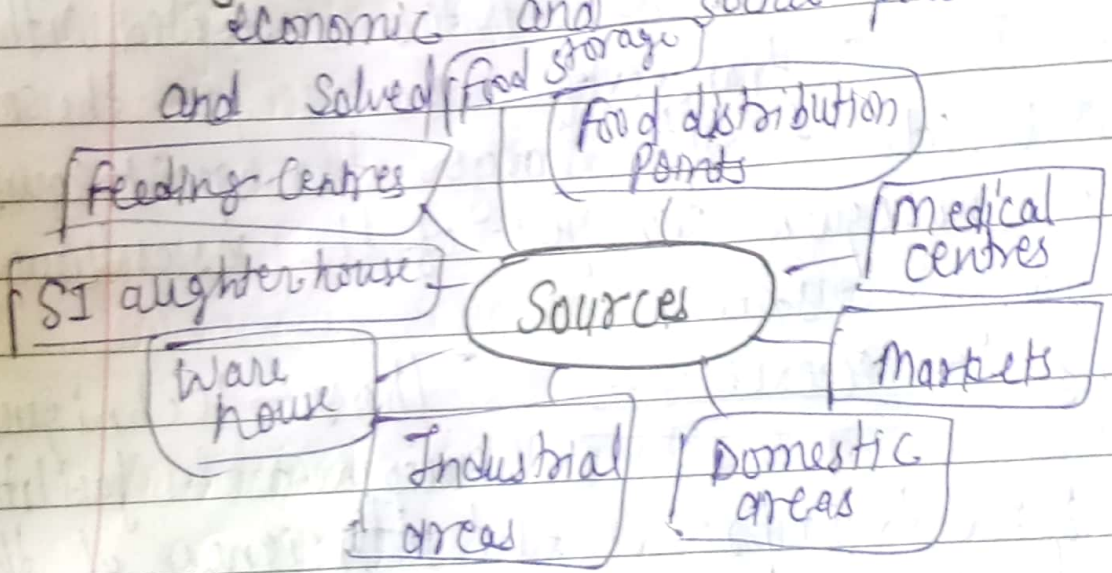 economic and
and solved
food storage
Food distribution
Points
Feeding Centres
Medical
centres
SI aughter house
Sources
Markets
Ware
house
Industrial
areas
Domestic
areas